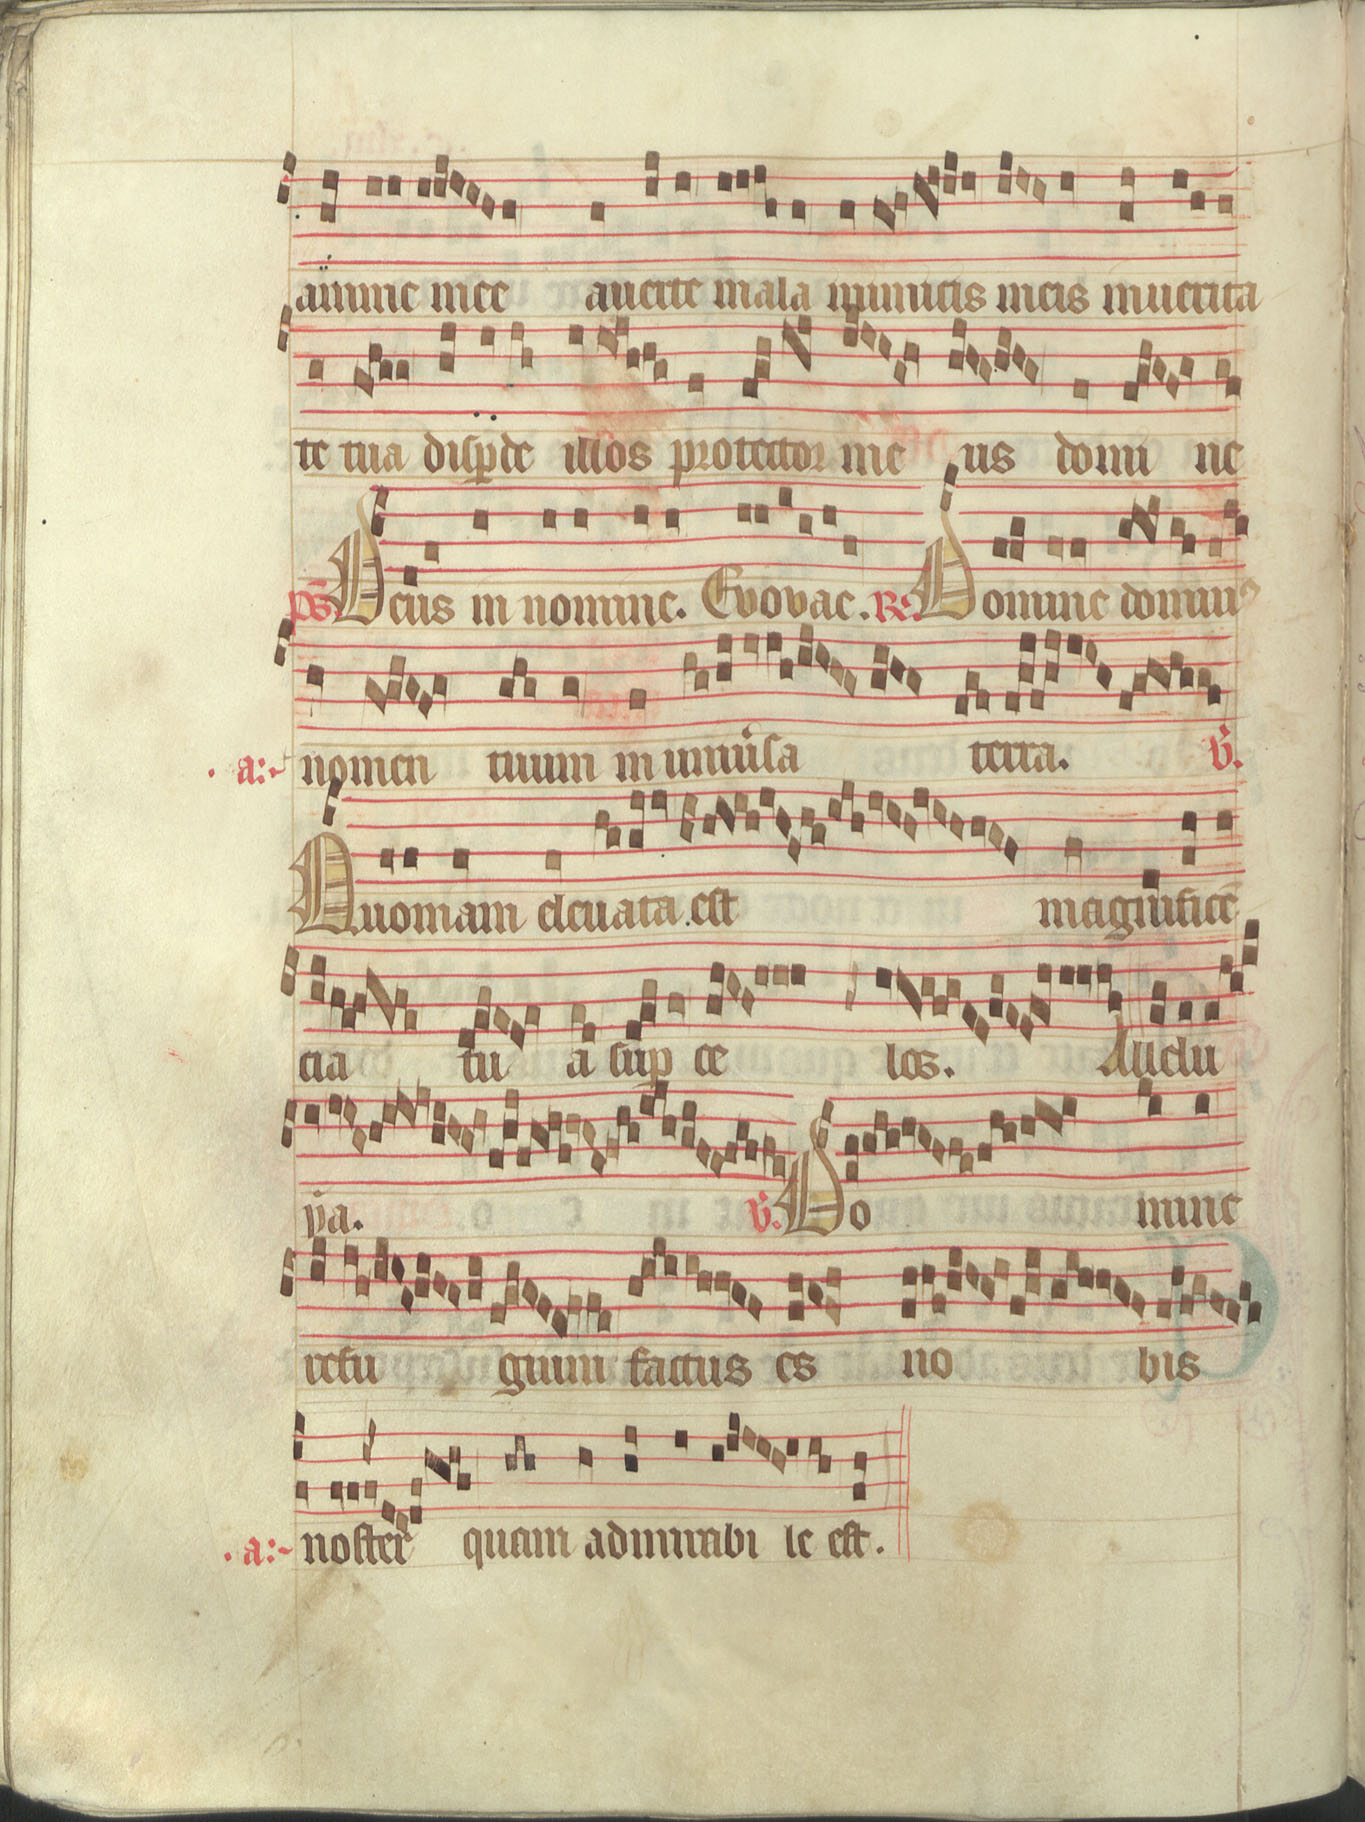 anime mee auerte mala inimicis meis in uerita
te tua disp̱de illos protector me us domi ne
ps̄. Deus in nomine. Evovae. R̵. Domine dominꝰ
a: nomen tuum in uniu̾sa terra. v̾.
Quoniam eleuata est magnificē
cia tu a sup̱ ce los. Allelu
ya. v̾. Do mine
refu gium factus es no bis
a: noster quam admirabi le est.